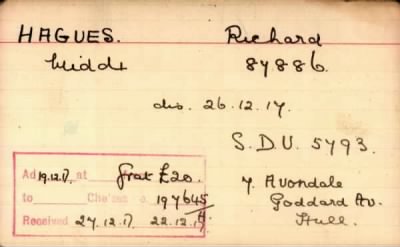 HAGUES. Richard
Midd 87886.
dis. 26.12.17.
S.D.U. 5793.
Ad 19.12.17. at Grat £20.
to Che's no. 197645
Received 27.12.17. 22.12.17
7. Avondale
Goddard Av.
Hull.